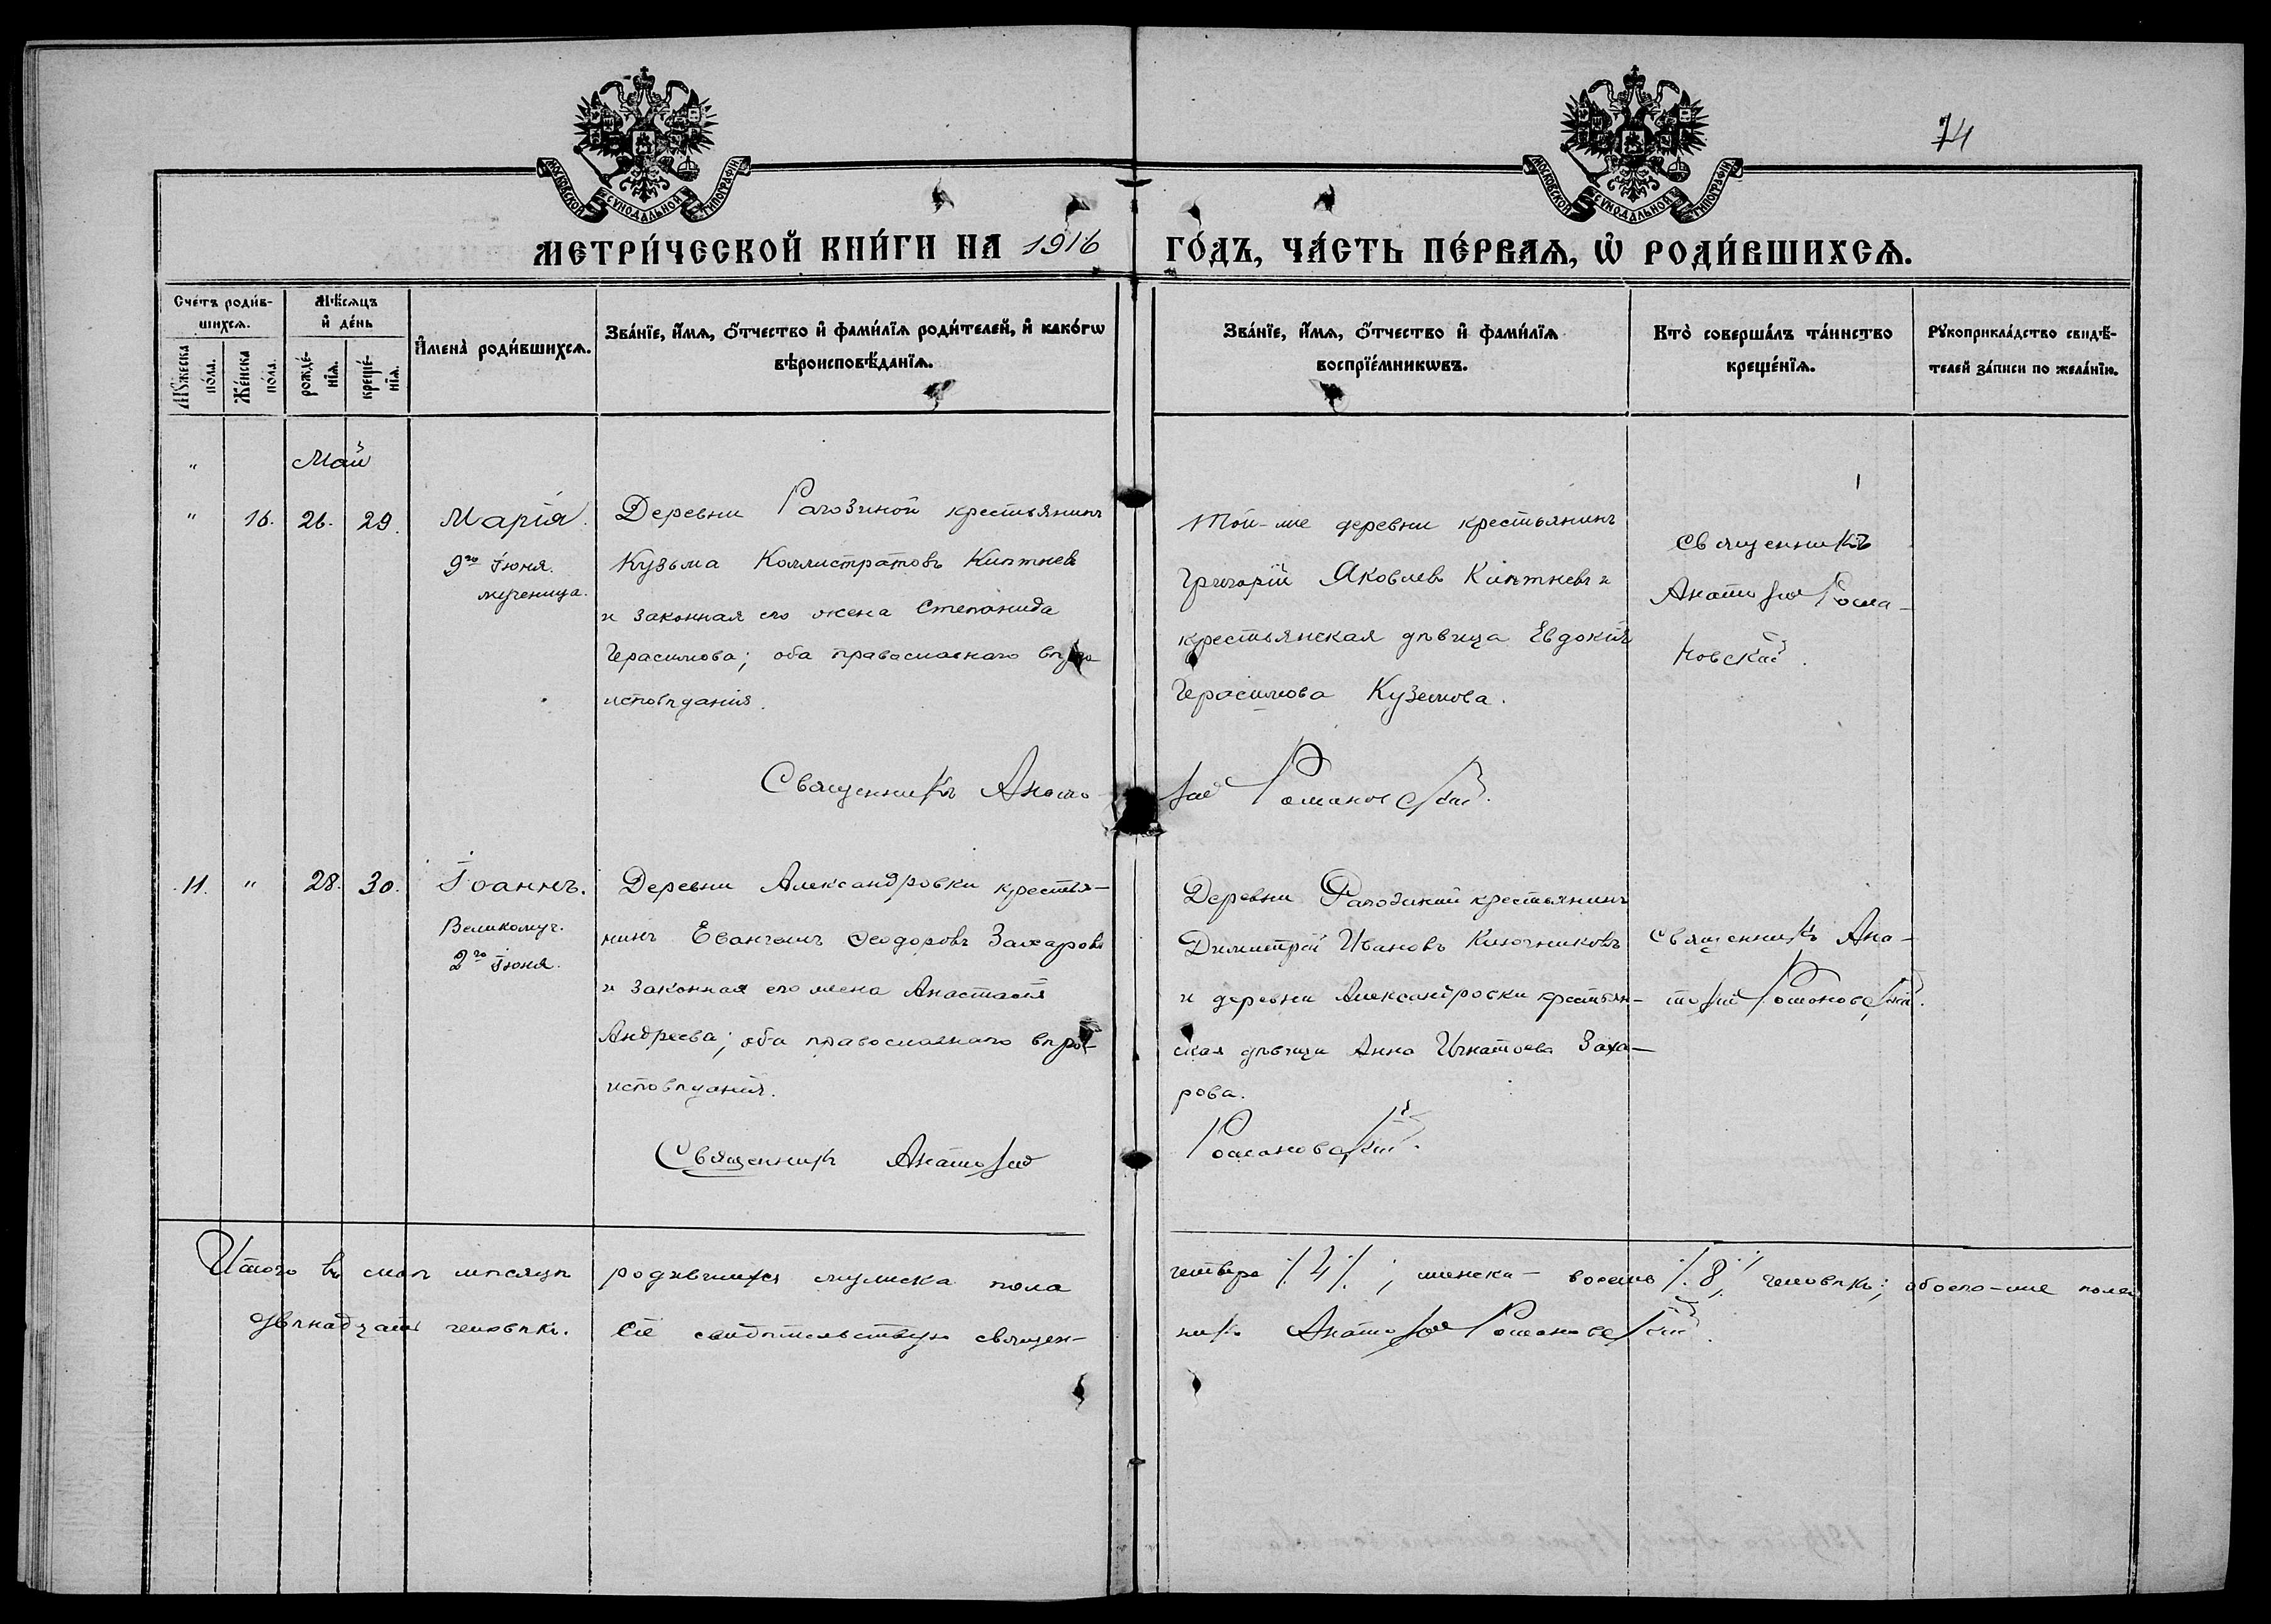 74
МОСКОВСКОЙ СѴНОДАЛЬНОЙ ТИПОГРАФІИ
МОСКОВСКОЙ СѴНОДАЛЬНОЙ ТИПОГРАФІИ
МЕТРИ́ЧЕСКОЙ КНИ́ГИ НА 1916 ГО́ДЪ, ЧА́СТЬ ПЕ́РВАѦ, Ѡ҆ РОДИ́ВШИХСѦ.
Сче́тъ роди́в-
шихсѧ.
Мꙋ́жеска по́ла.
Же́нска по́ла.
Мѣ́сѧцъ
и҆ де́нь
рожде́-
нїѧ.
креще́-
нїѧ.
И҆мена̀ роди́вшихсѧ.
Зва́нїе, и҆́мѧ, ѻ҆́тчество и҆ фами́лїѧ роди́телей, и҆ како́гѡ
вѣроисповѣ́данїѧ.
Зва́нїе, и҆́мѧ, ѻ҆́тчество и҆ фами́лїѧ
воспрїе́мникѡвъ.
Кто̀ соверша́лъ та́инство
креще́нїѧ.
Рꙋкоприкла́дство свидѣ́-
телей за́писи по жела́нїю.
"
Май
" 16. 26. 29.
Марія.
9го Іюня.
мученица.
Деревни Рагозиной крестьянинъ
Кузьма Коллистратовъ
и законная его жена Степанида
Герасимова; оба православнаго вѣро
исповѣданія.
Той-же деревни крестьянинъ
Григорій Яковлевъ и
крестьянская дѣвица Евдокія
Герасимова Куземова.
Священникъ
Анатолій Рома-
новскій.
Священникъ Анато-
лій Романовскій.
11. " 28. 30.
Іоаннъ.
Великомуч.
2го Іюня.
Деревни Александровки крестья-
нинъ Евангелъ Ѳеодоровъ Захаровъ
и законная его жена Анастасія
Андреева; оба православнаго вѣро-
исповѣданія.
Деревни Рагозиной крестьянинъ
Димитрій Ивановъ Ключниковъ
и деревни Александровки крестьян-
ская дѣвица Анна Игнатьева Заха-
рова.
Священникъ Ана-
толій Романовскій.
Священникъ Анатолій Романовскій.
Итого въ маѣ мѣсяцѣ родившихся мужска пола четверо /.4/.; женска - восемь /.8./ человѣкъ; обоего-же пола
двѣнадцать человѣкъ. Сіе свидѣтельствую священ-
никъ Анатолій Романовскій.